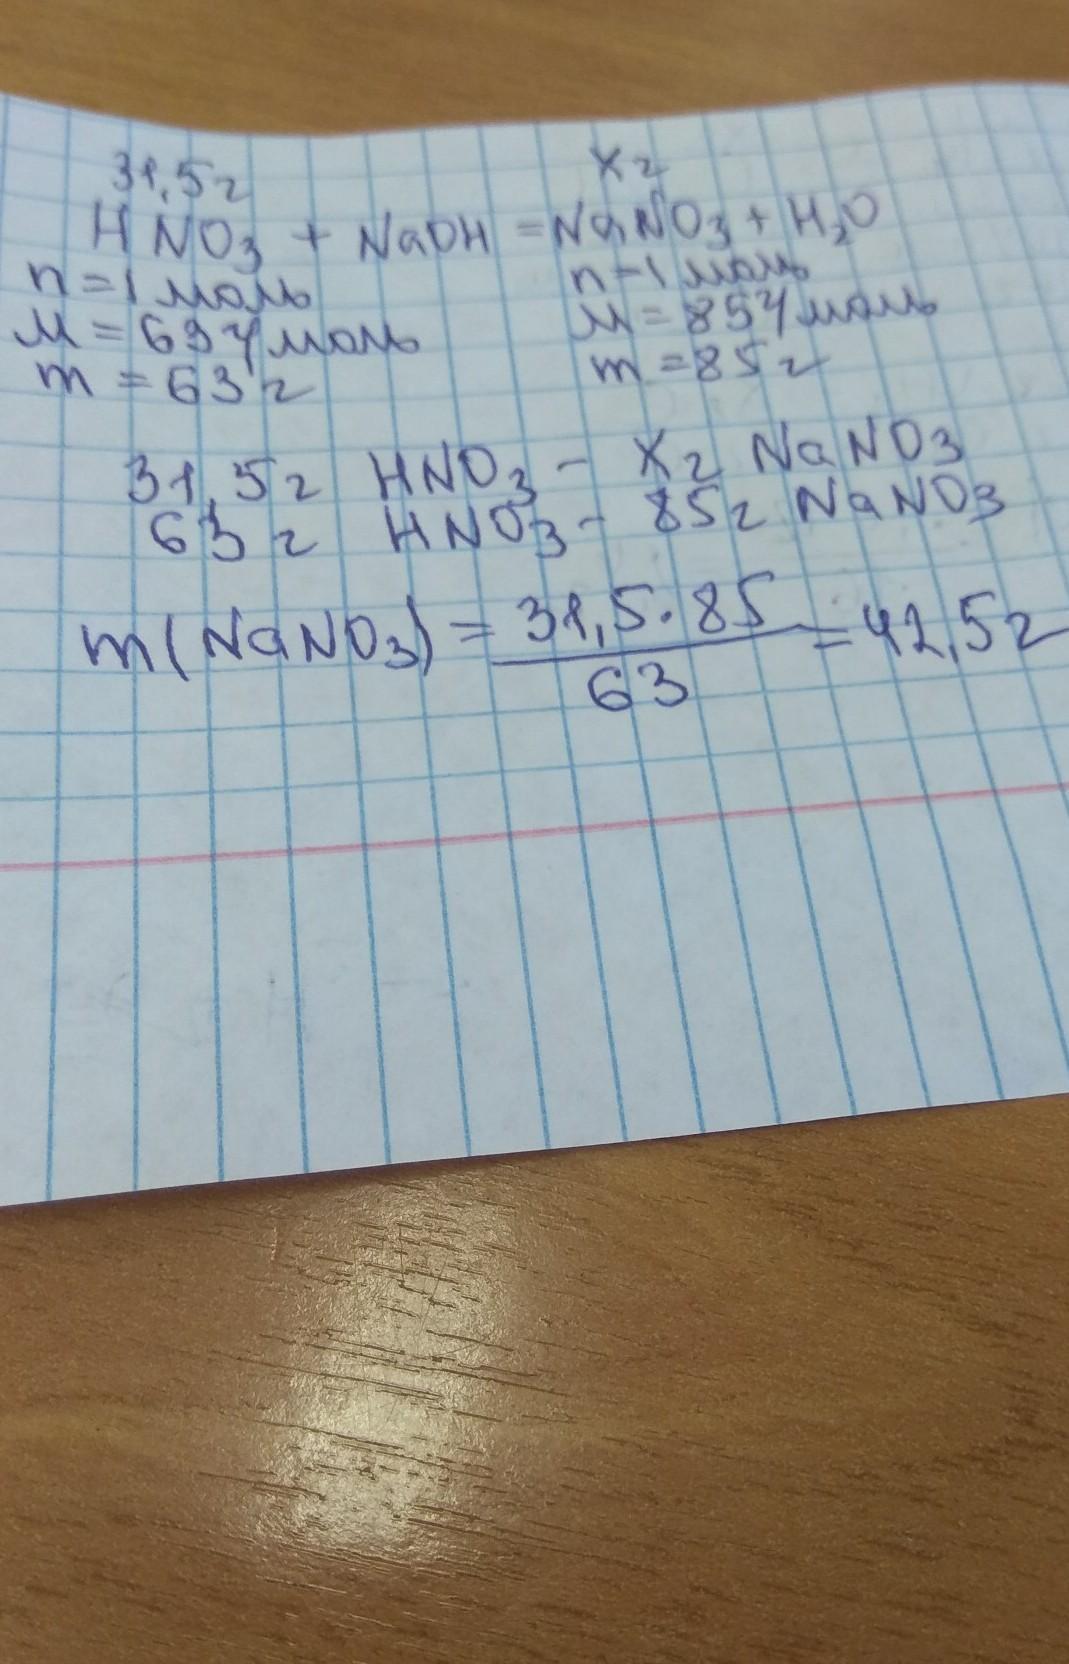 31,5г Xг
HNO3 + NaOH = NaNO3 + H2O
n=1моль n-1моль
M=63г/моль M=85г/моль
m=63г m=85г
31,5г HNO3 - Xг NaNO3
63г HNO3 - 85г NaNO3
m(NaNO3) = 31,5·85 / 63 = 42,5г